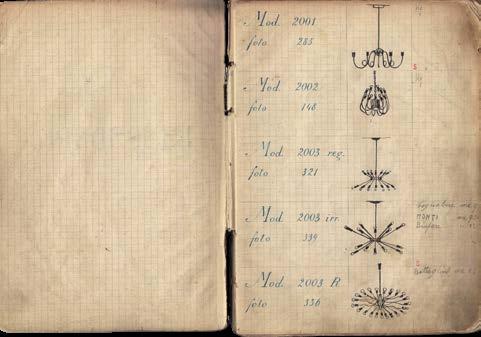 Mod. 2001
foto 285
S
Mod. 2002
foto 148
Mod. 2003 reg.
foto 321
Mod. 2003 irr.
foto 339
MONTI
S
Mod. 2003 R
foto 336